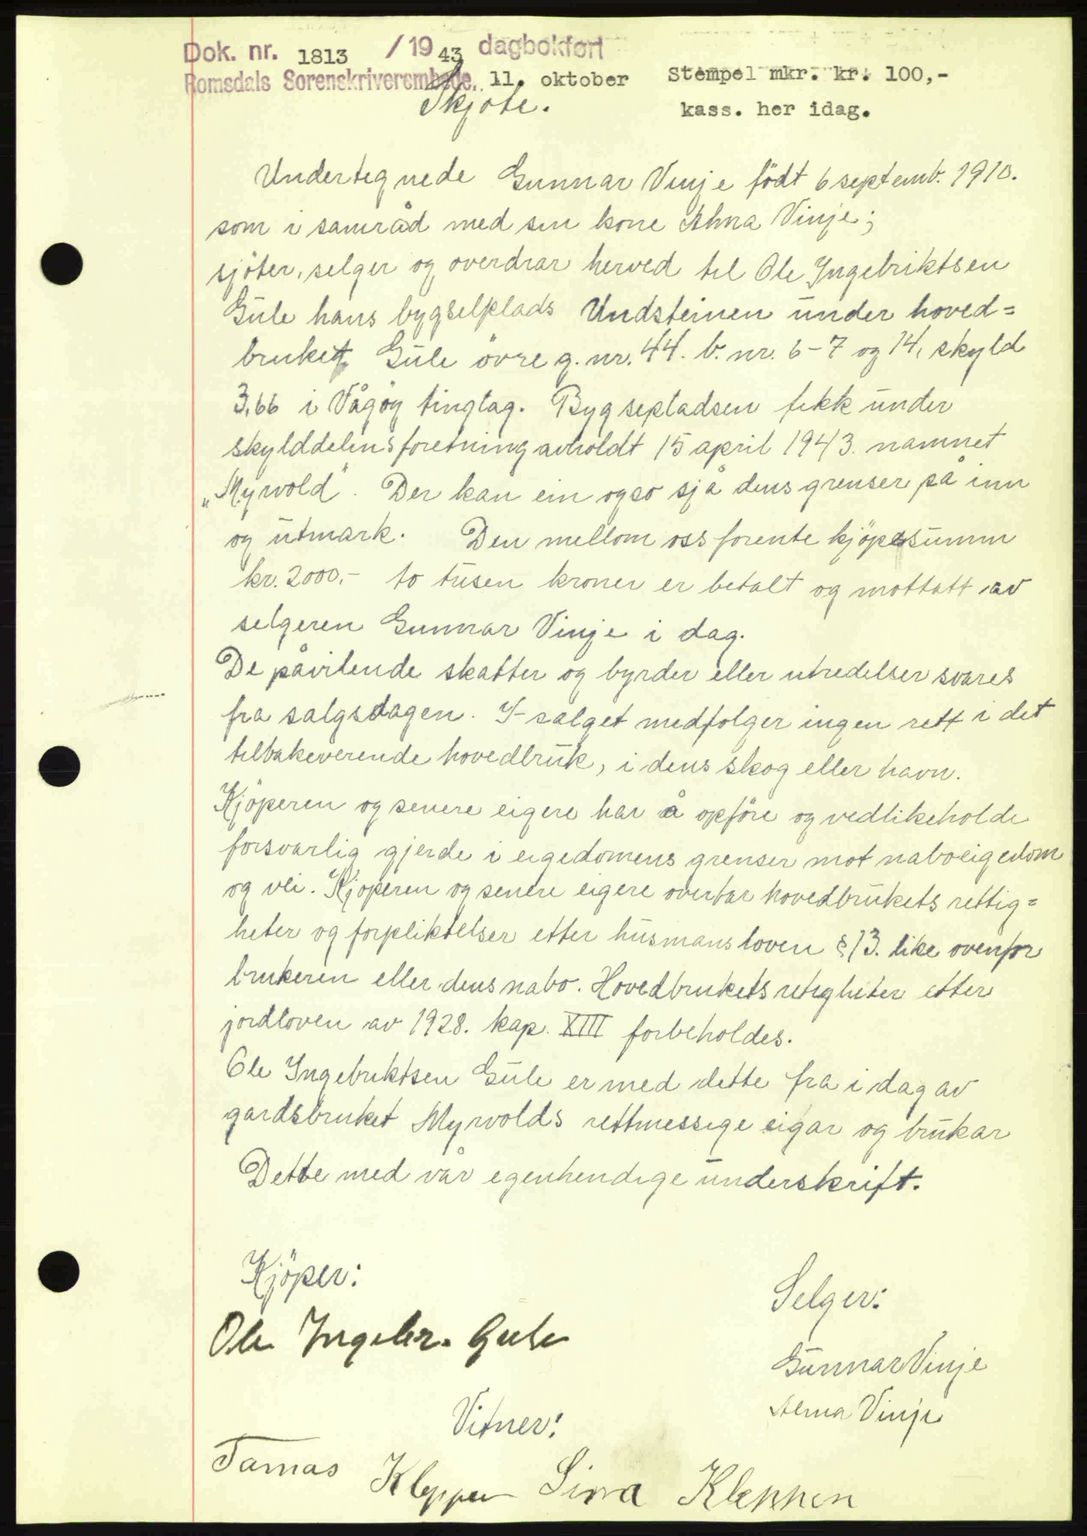 Dok. nr. 1813 / 19 43 dagbokført
Romsdals Sorenskriverembede. 11. oktober Stempel mkr. kr. 100,-
Skjøte. kass. her idag.
Undertegnede Gunnar Vinje födt 6 septemb. 1910.
som i samråd med sin kone Alma Vinje;
sjöter, selger og overdrar herved til Ole Ingebriktsen
Gule hans bygselplads Undsteinen under hoved=
bruket Gule övre g. nr. 44. b. nr. 6-7 og 14, skyld
3,66 i Vågöy tinglag. Bygsepladsen fikk under
skylddelinsforetning avholdt 15 april 1943. namnet
„Myrvold". Der kan ein ogso sjå dens grenser på inn
og utmark. Den mellom oss forente kjöpesumm
kr. 2000,- to tusen kroner er betalt og mottatt av
selgeren Gunnar Vinje i dag.
De påvilende skatter og byrder eller utredelser svares
fra salgsdagen. I salget medfølger ingen rett i det
tilbakeverende hovedbruk, i dens skog eller havn.
Kjöperen og senere eigere har å opföre og vedlikeholde
forsvarlig gjerde i eigedomens grenser mot naboeigedom
og vei. Kjöperen og senere eigere overtar hovedbrukets rettig=
heter og forpliktelser etter husmansloven §13. like ovenfor
brukeren eller dens nabo. Hovedbrukets retigheter etter
jordloven av 1928. kap. XIII forbeholdes.
Ole Ingebriktsen Gule er med dette fra i dag av
gardsbruket Myrvolds rettmessige eigar og brukar
Dette med vår egenhendige underskrift.
Kjöper:
Selger:
Ole Ingebr. Gule
Gunnar Vinje
Alma Vinje
Vitner:
Tomas Kleppen Sina Kleppen